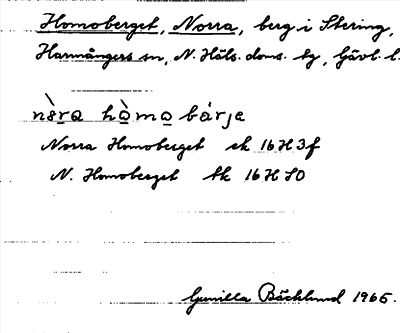 Homoberget, Norra, berg i Stering,
Harmångers sn, N. Häls. doms. tg, Gävl. l.
nὲra hòmo bárje
Norra Homoberget ek 16H 3f
N. Homoberget tk 16H SO
Gunilla Bäcklund 1965.